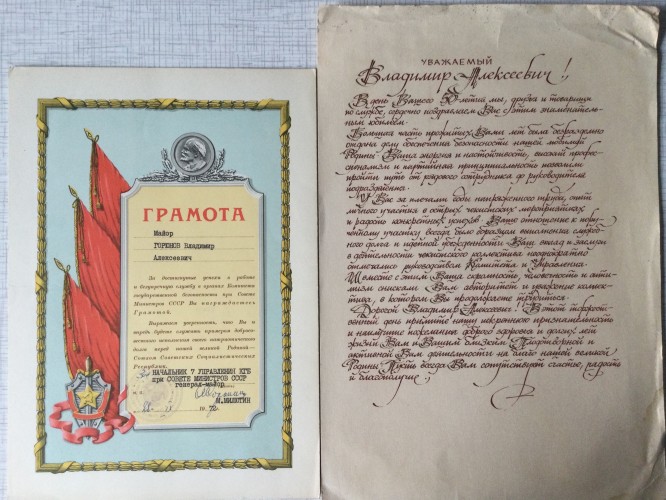 ГРАМОТА
Майор
ГОРЮНОВ Владимир
Алексеевич
За достигнутые успехи в работе
и безупречную службу в органах Комитета
государственной безопасности при Совете
Министров СССР Вы награждаетесь
Грамотой.
Выражаем уверенность, что Вы и
впредь будете служить примером добросо-
вестного исполнения своего патриотическо-
го долга перед нашей великой Родиной —
Союзом Советских Социалистических
Республик.
НАЧАЛЬНИК 7 УПРАВЛЕНИЯ КГБ
при СОВЕТЕ МИНИСТРОВ СССР
генерал-майор
М.МИЛЮТИН
1972
УВАЖАЕМЫЙ
Владимир Алексеевич!
В день Вашего 50-летия мы, друзья и товарищи
по службе, сердечно поздравляем Вас с этим знаменатель-
ным юбилеем.
Большая часть прожитых Вами лет была безраздельно
отдана делу обеспечения безопасности нашей любимой
Родины. Ваша энергия и настойчивость, высокий профес-
сионализм и партийная принципиальность позволили
пройти путь от рядового сотрудника до руководителя
подразделения.
У Вас за плечами годы напряженного труда,
личного участия в острых чекистских мероприятиях
и радость конкретных успехов. Ваше отношение к пору-
ченному участку всегда было образцом выполнения служеб-
ного долга и идейной убежденности. Ваш вклад и заслуги
в деятельности чекистского коллектива неоднократно
отмечались руководством Комитета и Управления.
Вместе с этим Ваша скромность, человечность и опти-
мизм снискали Вам авторитет и уважение коллек-
тива, в котором Вы продолжаете трудиться.
Дорогой Владимир Алексеевич! В этот торжест-
венный день примите нашу искреннюю признательность
и наилучшие пожелания доброго здоровья и долгих лет
жизни Вам и Вашим близким. Плодотворной и
активной Вам деятельности на благо нашей великой
Родины. Пусть всегда Вам сопутствуют счастье, радость
и благополучие!